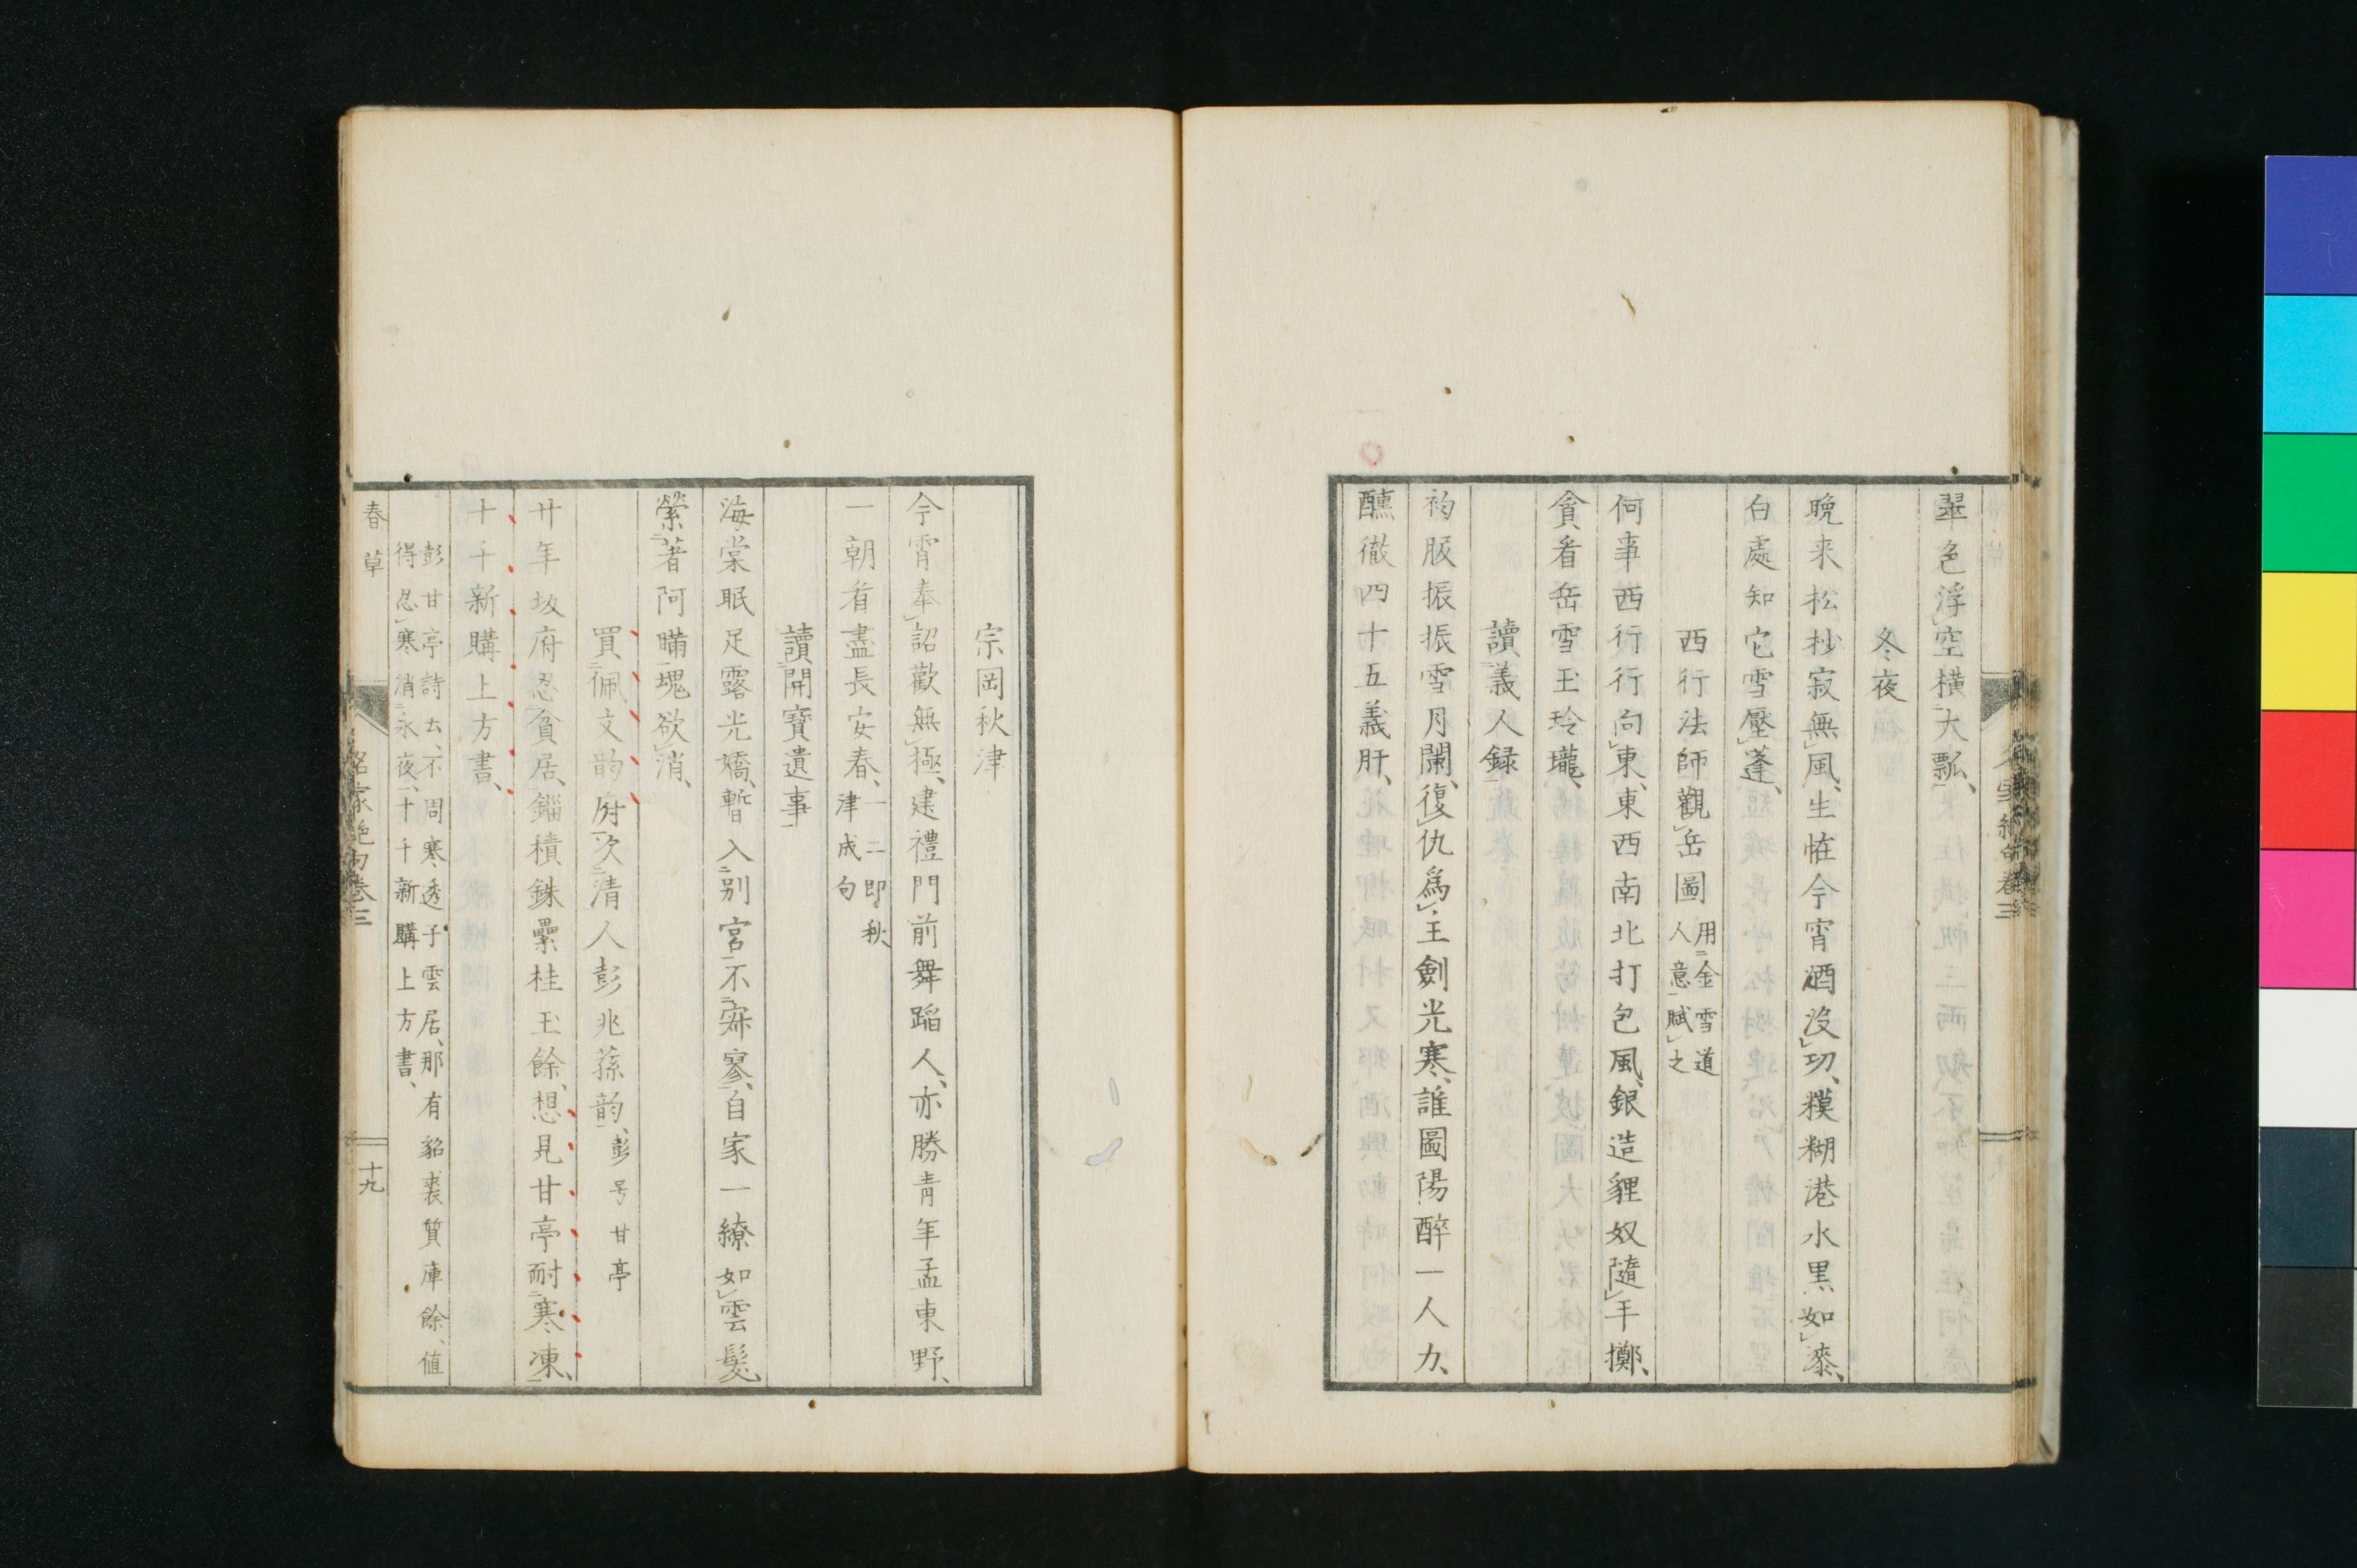 翠色浮空橫大瓢、
冬夜
晩来松杪寂無風、生怪今宵酒沒功、糢糊港水黒如漆、
白處知它雪壓蓬、
西行法師觀岳圖 用金雪道人意賦之
何事西行行向東、東西南北打包風、銀造貍奴隨手擲、
貪看岳雪玉玲瓏、
讀義人録
袀服振振雪月闌、復仇爲主劍光寒、誰圖陽醉一人力、
醺徹四十五義肝、
宗岡秋津
今宵奉詔歡無極、建禮門前舞蹈人、亦勝青年孟東野、
一朝看盡長安春、一二即秋津成句
讀開寶遺事
海棠眠足露光嬌、暫入別宮不寂寥、自家一繚如雲髮
縈著阿瞞塊欲消、
買佩文韵府次清人彭兆蓀韵、彭号甘亭
廿年坂府忍貧居、錙積銖纍桂玉餘、想見甘亭耐寒凍、
十千新購上方書、
彭甘亭詩云、不周寒透子雲居、那有貂裘質庫餘、値
得忍寒消永夜、十千新購上方書、
春草
名家絶句卷三
十九